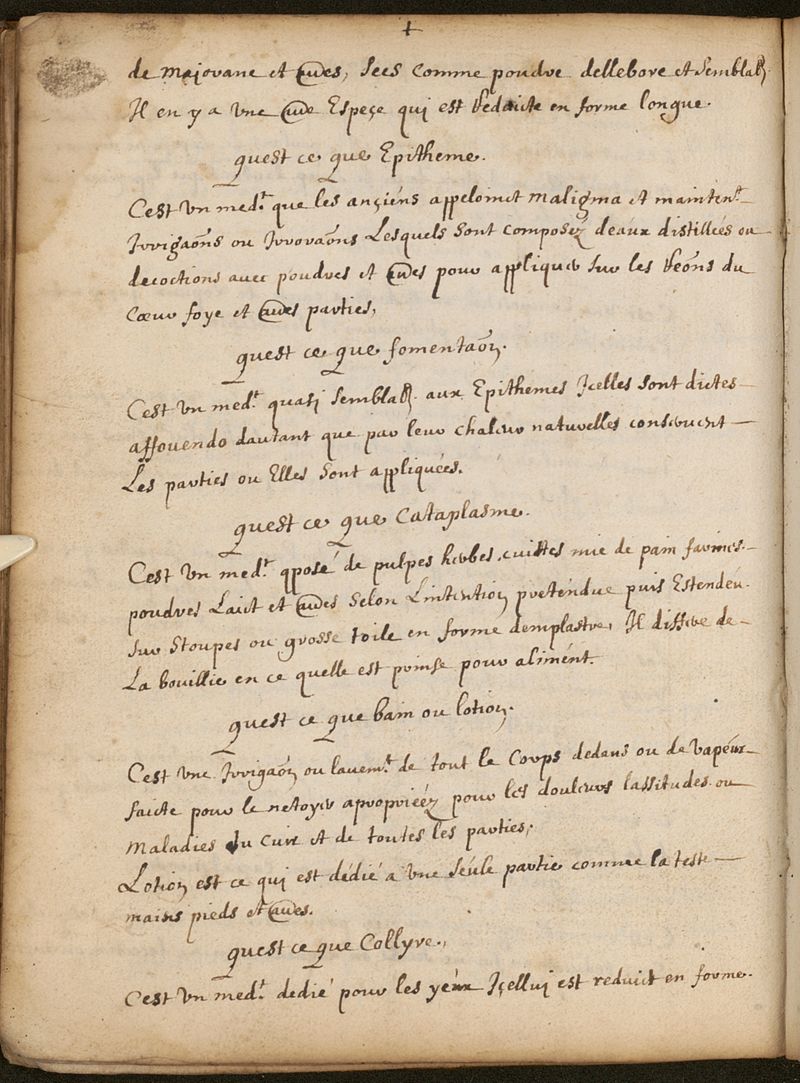 +
de majorane et aues, secs comme poudre dellebore et semblab.
Il en y a une aue Espeçe quj est Redaicte en forme longue.
quest ce que Epitheme.
Cest un med.t que les ançiéns appeloinct maligma et mainten.t
Irrigaõns ou Irroraõns Lesquels sont composéz deaux distillées ou
decoctions avec poudres et aues pour appliquer sur les Reõns du
Cœur foye et aues parties,
quest ce que fomentaõn.
Cest un med.t quasj semblab. aux Epithemes Icelles sont dictes
affouendo dautant que par leur chaleur naturelles conservent
Les parties ou Elles sont appliquées.
quest ce que Cataplasme.
Cest un med.t qposé de pulpes herbes cuittes mie de pain farines
poudres Laict et aues selon Lintention pretendue puis Estendeu
sur Stoupes ou grosse toile en forme demplastre, Il differe de
La bouillie en ce quelle est prinse pour alimént.
quest ce que bain ou lotion.
Cest une Irrigaõn ou lavem.t de tout le Corps dedans ou de vapeur
faicte pour le netoyer apropriééz pour les douleurs lassitudes ou
Maladies du Cuir et de toutes les parties,
Lotion est ce quj est dédié a une séule partie comme la teste
mains pieds et aues.
quest ce que Collyre.
Cest un med.t dedié pour les yeux Içelluj est reduict en forme